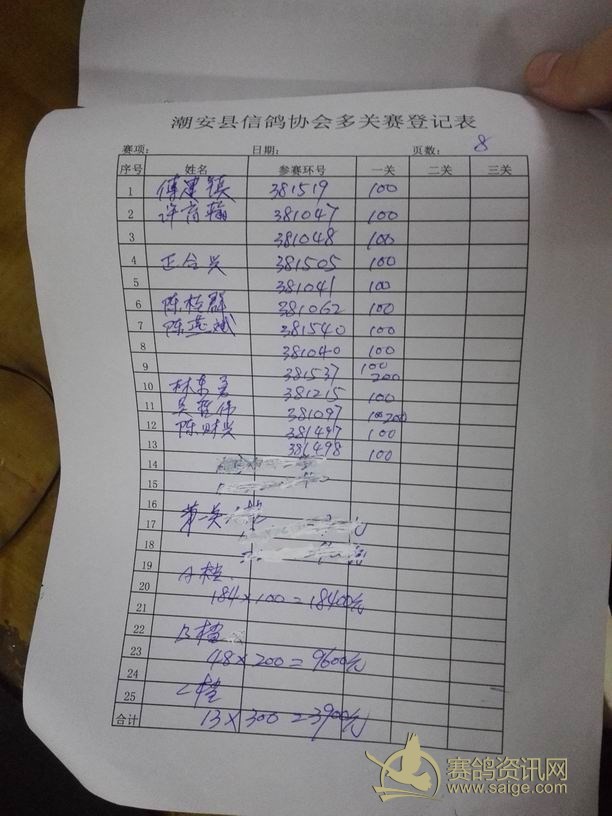 潮安县信鸽协会多关赛登记表
赛项： 日期： 页数： 8
序号 姓名 参赛环号 一关 二关 三关
1 傅建镇 381519 100
2 许育翰 381047 100
3 381048 100
4 正合兴 381505 100
5 381041 100
6 陈桂群 381062 100
7 陈燕斌 381540 100
8 381040 100
9 381537 100 200
10 林东君 381215 100
11 吴哲伟 381097 100 200
12 陈财兴 381497 100
13 381498 100
14
15
16
17 第一关
18
19 A档
20 184×100=18400元
21
22 B档
23 48×200=9600元
24
25 C档
合计 13×300=3900元
赛鸽资讯网
www.saige.com